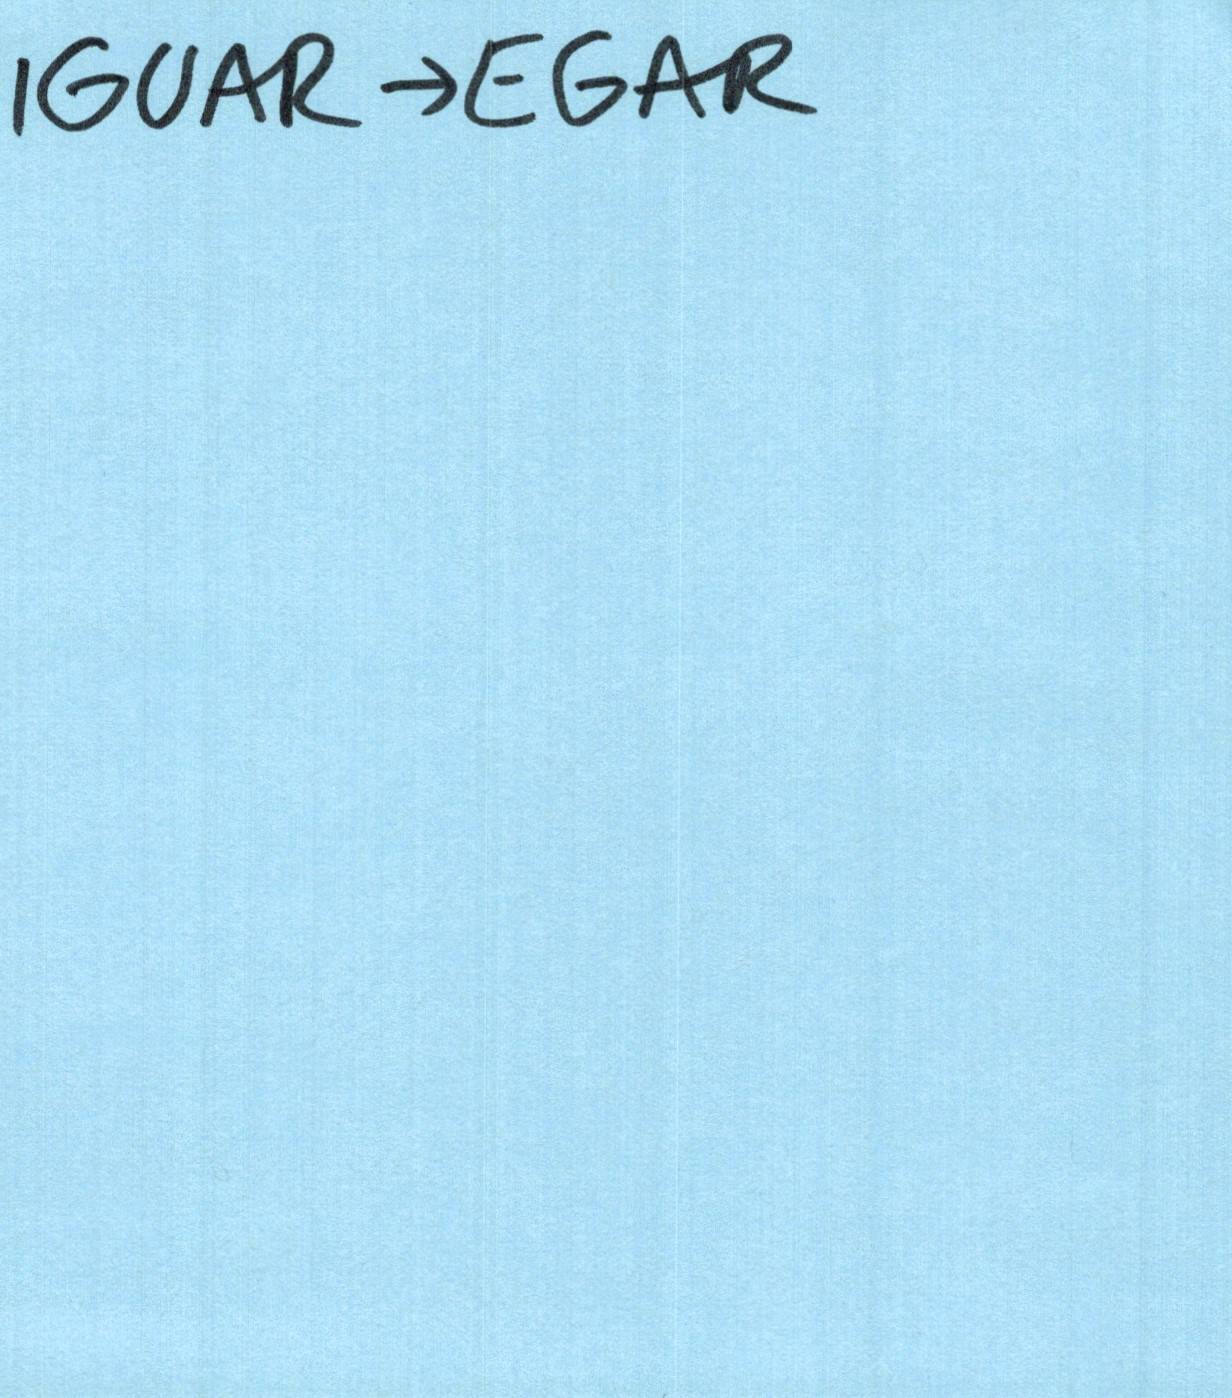 IGUAR → EGAR